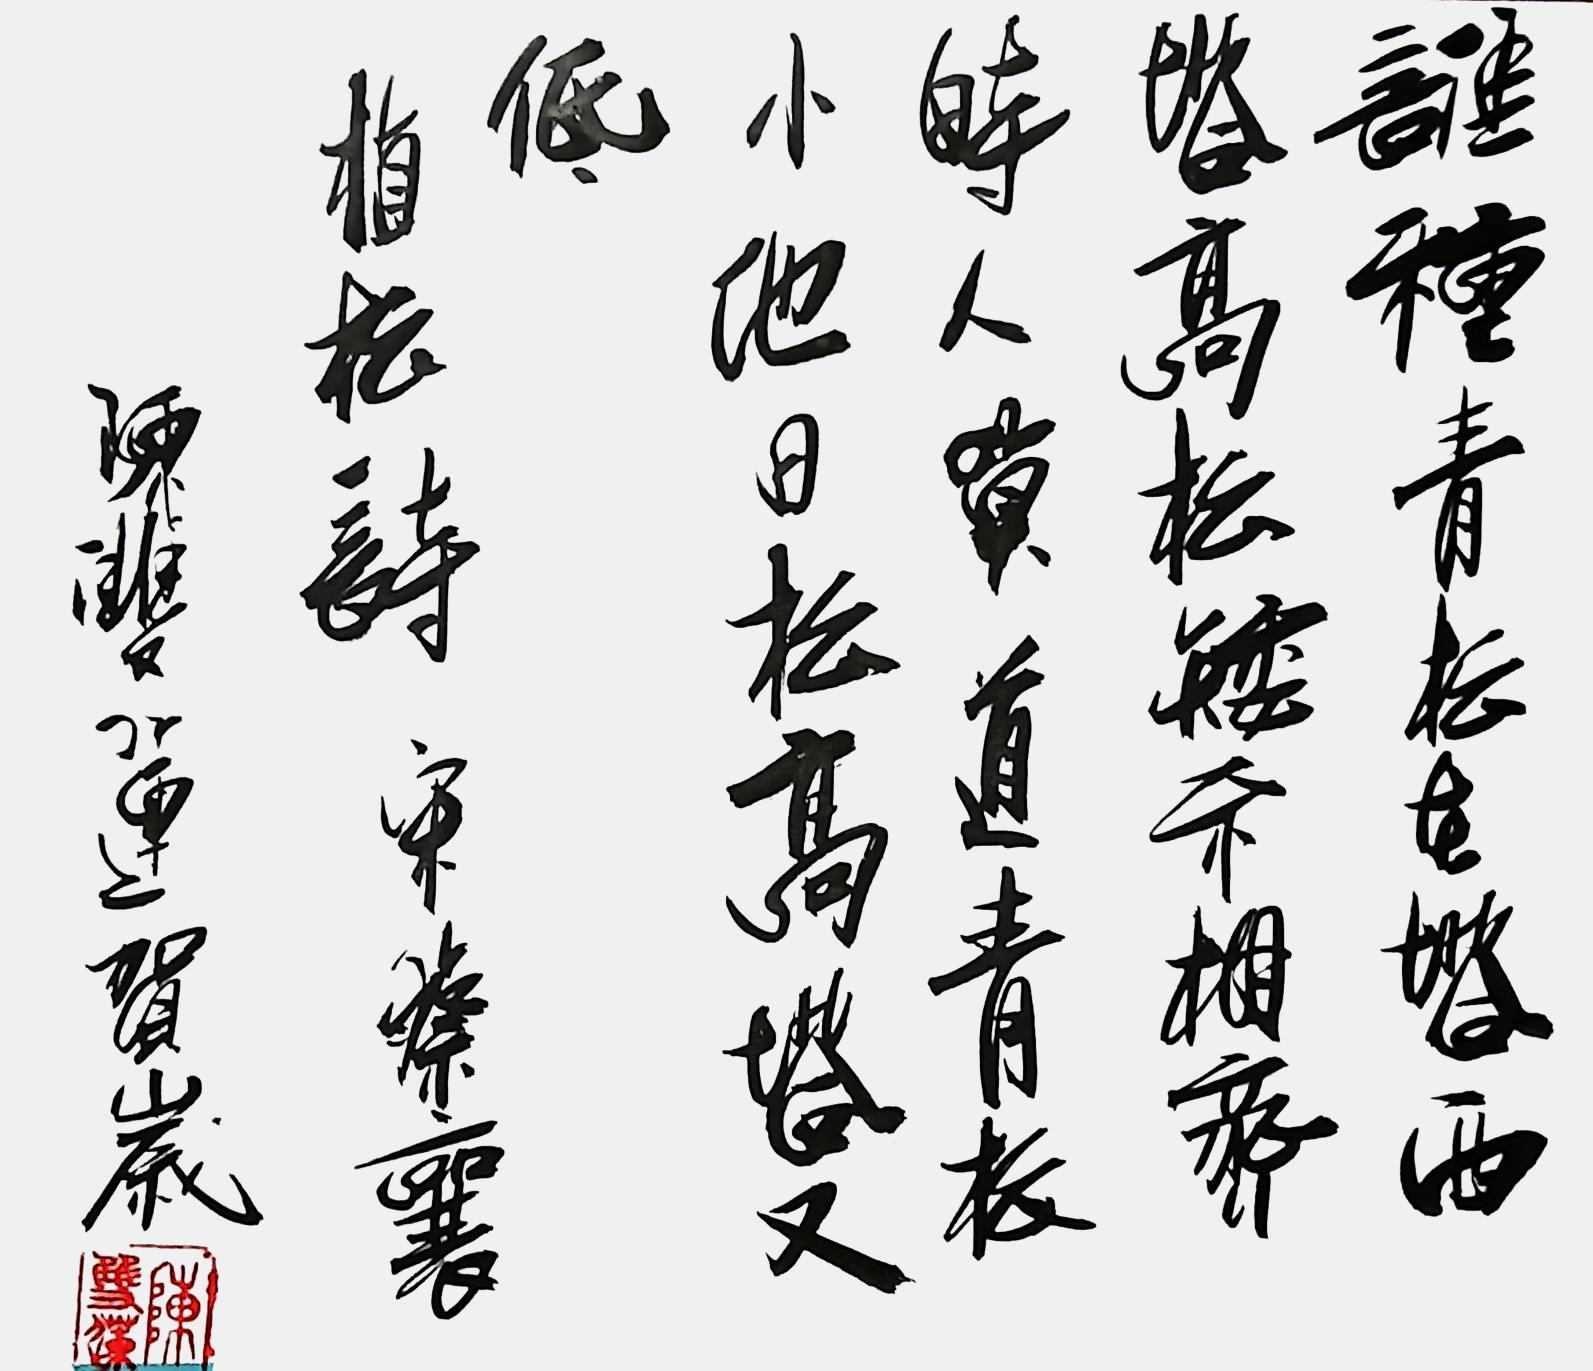 誰種青松在塔西
塔高松矮不相齊
時人莫道青松
小他日松高塔又
低
植松詩 宋 蔡襄
陳雙蓮賀歲
陳雙蓮